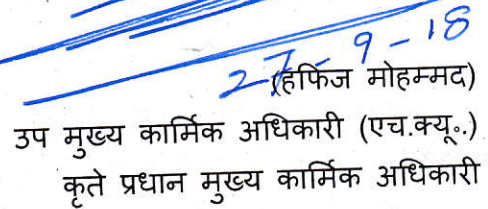 27-9-18
(हफिज मोहम्मद)
उप मुख्य कार्मिक अधिकारी (एच.क्यू॰.)
कृते प्रधान मुख्य कार्मिक अधिकारी